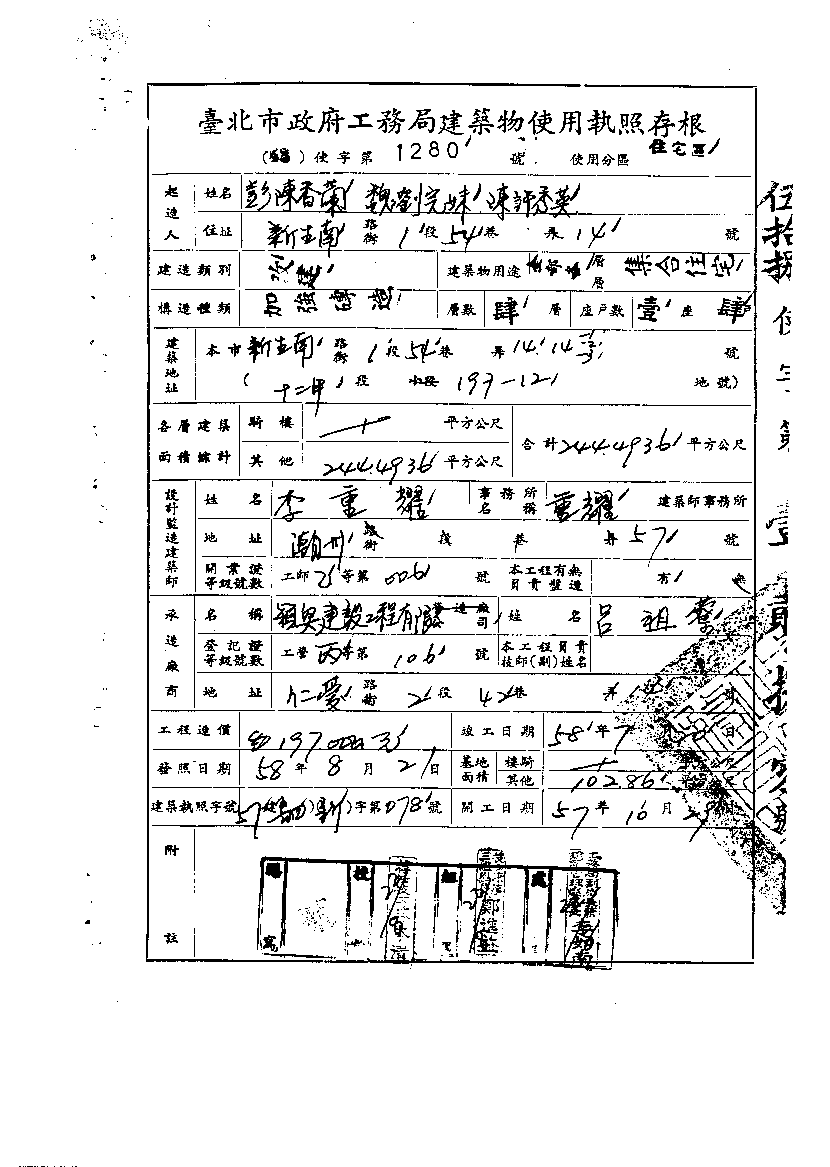 臺北市政府工務局建築物使用執照存根
使字第1280號 使用分區 住宅區
起造人 姓名 彭陳香蘭 魏劉完妹 陳許秀英
住址 新生南路街1段54巷 弄14號
建造類別 改建 建築物用途 層層 集合住宅
構造種類 加強磚造 層數 肆 層 座戶數 壹 座 肆
建築地址 本市新生南路街1段54巷 弄14.14 號
( 十二甲 段 小段 197-12 地號)
各層建築面積總計 騎樓 平方公尺 合計244.4936平方公尺
其他 244.4936 平方公尺
設計監造建築師 姓名 李重耀 事務所名稱 重耀 建築師事務所
地址 潮州路街 段 巷 弄57號
開業證等級號數 工師 等第006號 本工程有無負責監造 有 無
承造廠商 名稱 建設工程有限 姓名 呂祖
登記證等級號數 工營丙等第106號 本工程負責技師(副)姓名
地址 仁愛路街2段42巷 弄 號
工程造價 197000元 竣工日期 58年7月 日
發照日期 58年8月21日 基地面積 騎樓 平方公尺
其他 102.86
建築執照字號 57 字第078號 開工日期 57年10月29日
附註
伍拾捌使字第壹貳捌